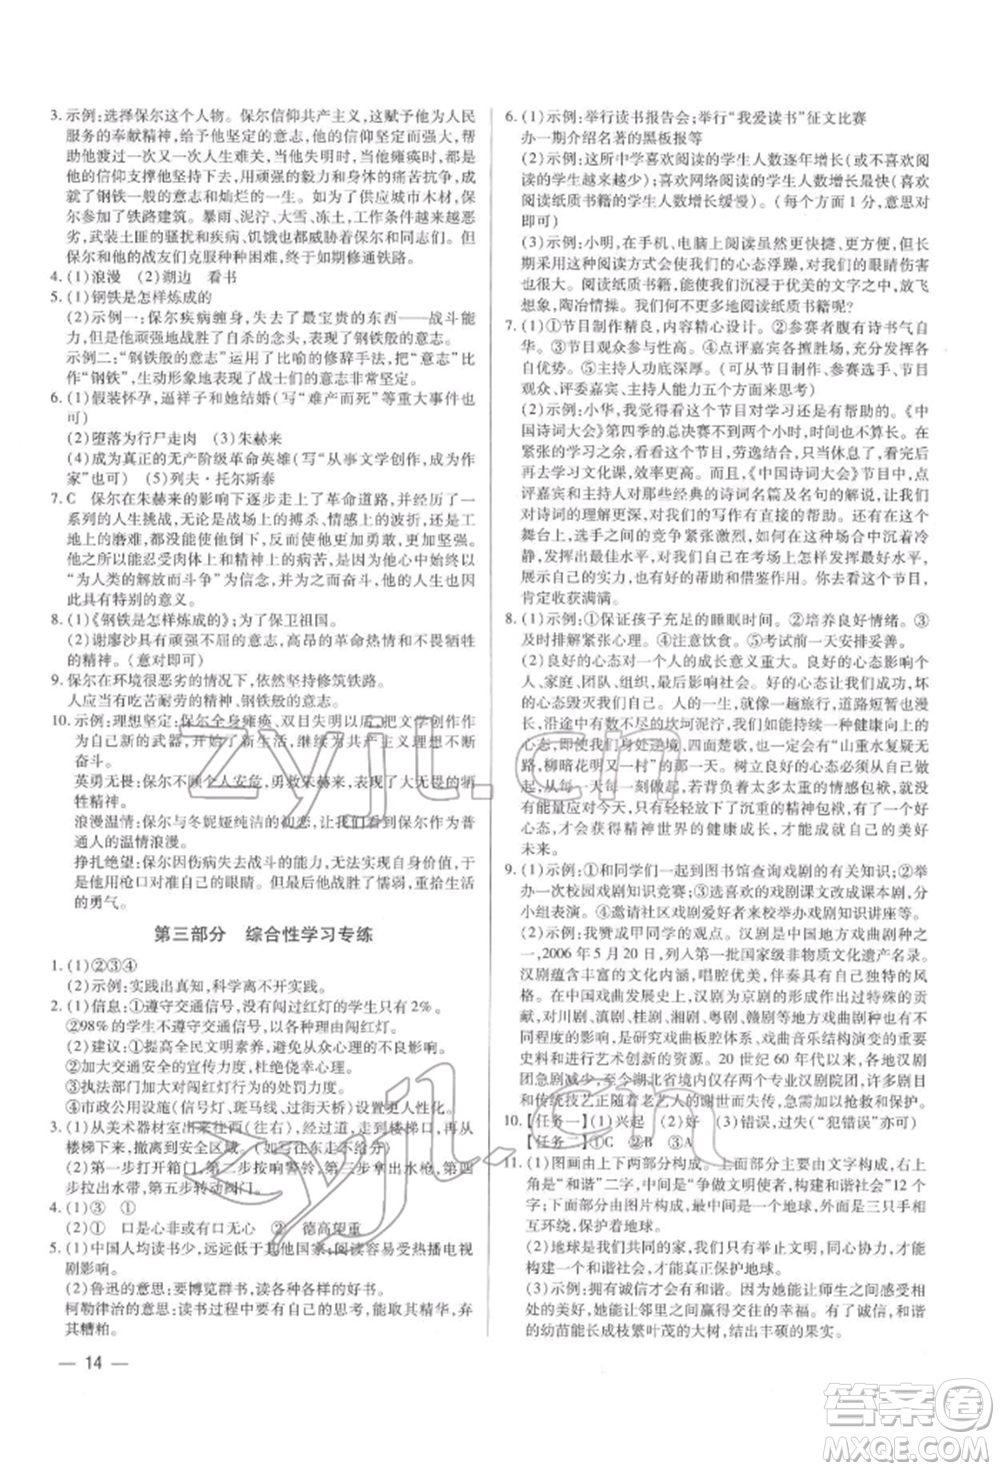 3. 示例:选择保尔这个人物。保尔信仰共产主义,这赋予他为人民
服务的奉献精神,给予他坚定的意志,他的信仰坚定而强大,帮
助他度过一次又一次人生难关,当他失明时,当他瘫痪时,他坚
定的信仰支撑着他以顽强的毅力和身体的病痛作抗争,成就了
他钢铁一般的意志和灿烂的人生。为了供应城市木材,保
尔参加了铁路建筑。暴雨、泥泞、大雪、冻土,工作条件越来越恶
劣,武装土匪的骚扰和疾病、饥饿也都威胁着保尔和他的战友。
但保尔和他的战友们克服种种困难,终于如期修通铁路。
4. (1)浪漫 (2)湖边 看书
5. (1)钢铁是怎样炼成的
(2)示例一:保尔疾病缠身,失去了最宝贵的东西——战斗能
力,产生了以自杀的方式结束生命的念头,但最终战胜了自己。
示例二:“钢铁般的意志”运用了比喻的修辞手法,把“意志”比作
“钢铁”,生动形象地表现了战士们的意志非常坚定。
6. (1)假装怀孕,逼祥子和她结婚(写“难产而死”等其他情节也
可)
(2)堕落为行尸走肉 (3)朱赫来
(4)成为真正的无产阶级革命英雄(写“从事文学创作,成为作
家”也可) (5)列夫·托尔斯泰
7. C 保尔在朱赫来的影响下逐步走上了革命道路,并接受了一
系列的人生挑战,无论是战场上的厮杀、情感上的波折,还是工
地上的磨难,都没有使他屈服,倒使他更加勇敢、更加坚强。尽管
他不断忍受肉体上和精神上的病苦,但因为他心中始终燃烧着
“为人类的解放而斗争”为信念并为之奋斗,他的人生也
因此具有特别的意义。
8. (1)《钢铁是怎样炼成的》;为了保卫祖国。
(2)谢廖沙具有顽强不屈的意志,高昂的革命热情和不畏牺牲
的精神。(意对即可)
9. 保尔在环境很恶劣的情况下,依然坚持修筑铁路。
人应当有吃苦耐劳的精神、钢铁般的意志。
10. 示例:理想坚定:保尔全身瘫痪、双目失明以后,把文学创作作
为自己新的武器,开始了新生活,继续为共产主义理想而
奋斗。
英勇无畏:保尔不顾个人安危,勇救朱赫来,表现了他的英勇牺
牲精神。
浪漫温情:保尔与冬妮娅纯洁的初恋,让保尔的人生充满了普
通人的温情浪漫。
挣扎绝望:保尔因伤病失去战斗能力后,怀疑自身存在价值,于是
他把枪口对准自己的眼睛。但他最终战胜了懦弱,重拾生活
的勇气。
第三部分 综合性学习专练
1. (1)②③④
(2)示例:实践出真知,科学离不开实践。
2. (1)信息:①遵守交通信号,没有闯过红灯的学生只有2%。
②98%的学生不遵守交通信号,有闯红灯的现象。
(2)建议:①提高全民文明素养,认识闯红灯的不良影响。
②加大交通安全的宣传力度,杜绝侥幸心理。
③执法部门加大对闯红灯行为的处罚力度。
④市政公用设施(信号灯、斑马线、过街天桥等)设置更合理。
3. (1)从美术器材室出来往西(往右),经过过道,走到楼梯口,再从
楼梯下来,撤离到安全区域。(写往东走不给分)
(2)第一步打开箱门,第二步按响警铃,第三步接好水带,第四
步拉出水带,第五步转动阀门。
4. (1)③ ①
(2)① 口是心非或有口无心 ② 德高望重
5. (1)中国人均读书少,远远低于其他国家;阅读容易受热播电视
剧影响。
(2)鲁迅的意思:要博览群书,读各种各样的好书。
柯勒律治的意思:读书过程中要有自己的思考,能取其精华,弃
其糟粕。
6. (1)示例:举行读书报告会;举行“我爱读书”征文比赛
办一期介绍名著的黑板报等
(2)示例:这所中学喜欢阅读的学生人数逐年增长(或不喜欢阅读的学生
越来越少);喜欢网络阅读的学生人数增长迅速(喜欢
阅读纸质书籍的学生人数增长缓慢)。(每个方面1分,意思对
即可)
(3)示例:小明,在手机、电脑上阅读虽然更快捷、更方便,但
长期采用这种阅读方式会使我们的心态浮躁,对我们的眼睛伤害也
很大。阅读纸质书籍,能使我们沉浸于优美的文字之中,放飞
想象,陶冶情操。我们何不更多地阅读纸质书籍呢?
7. (1)①节目制作精良,内容精心设计。②参赛者腹有诗书气自
华。③节目观众参与性高。④点评嘉宾各擅胜场,充分发挥各
自优势。⑤主持人功底深厚。(可从节目制作、参赛选手、节目
观众、评委嘉宾、主持人能力五个方面来思考)
(2)示例:小华,我觉得看这个节目对学习还是有帮助的。《中
国诗词大会》第四季的总决赛不到两个小时,时间也不算长。在
紧张的学习之余,看看这类高质量的节目,劳逸结合,放松之后
再去学习文化课,效率更高。《中国诗词大会》选手的表现,点
评嘉宾和主持人对那些经典的诗词名篇及名句的解读,会加深我们
对诗词的理解更深刻,对我们的写作有直接帮助。在这个
舞台上,选手之间的竞争紧张激烈,如何在这种场合中沉着冷
静,发挥出最佳水平,对我们自己在考场上怎样发挥水平,
展示自己的实力,也有很好的帮助和借鉴作用。看这个节目,
肯定收获满满。
8. (1)示例:①保证孩子充足的睡眠时间。②培养良好情绪。③
及时排解紧张心理。④注意饮食。⑤考试前一天安排妥善。
(2)良好的心态对一个人的成长意义重大。良好的心态影响个
人、家庭、团队、组织、社会。人的一生,就像是旅行,道路短暂也漫
长,沿途中有数不尽的坎坷泥泞,如果我们时时保持一种健康向上的
心态,即使我们身处逆境,四面楚歌,也一定会有“山重水复疑无
路,柳暗花明又一村”的那一天。我们要以良好的心态
去对待每一天每一刻,若背着沉重的精神包袱,就没
有能量应对,只有轻轻放下了沉重的精神包袱,有一个好
心态,才会获得精神世界的健康成长,才会创造更加美好的
未来。
9. (1)示例:①和同学们一起到图书馆查询戏剧相关知识;②举
办一次校园戏剧知识竞赛;③选喜欢的戏剧课文改成课本剧,分
小组表演。④邀请社区戏剧爱好者来校举办戏剧知识讲座等。
(2)示例:我赞成甲同学的观点。汉剧是中国地方戏曲剧种之
一,2006年5月20日,列入第一批国家级非物质文化遗产名录。
汉剧蕴含丰富的文化内涵,唱腔优美,伴奏自由,具有独特的风格,
在中国戏曲发展史上占有重要地位,汉剧对京剧的形成有过特殊的贡
献,对川剧、滇剧、桂剧、湘剧、粤剧、赣剧等地方戏曲剧种产生过重要
的影响,是研究戏曲板腔体制、戏曲音乐结构演变的重要
史料和进行艺术创新的资源。20世纪60年代以来,各地汉剧
团急剧减少,至今除湖北省境内少数几个汉剧院团外,其他所剩无几,
传统技艺也随着老艺人的谢世而失传,保护传承刻不容缓。
10. 【任务一】(1)兴起 (2)好 (3)错误,过失(“犯错误”亦可)
【任务二】①C ②B ③A
11. (1)图画由上下两部分构成。上面部分主要由文字构成,有“和
谐”二字,三行字:“争做文明使者,构建和谐社会”12个
字;下面部分由图片构成,主要构图是地球,两只手相
互环绕,保护着地球。
(2)地球是我们共同的家园,我们只有举止文明,和谐共处,才能
构建美好家园,才能真正保护地球。
(3)示例:拥有诚信才会有和谐。诚信是阳光,她能让师生之间和谐
相处,她能让邻里之间赢得交往的幸福。有了诚信,和谐
的幼苗能长成枝繁叶茂的大树,结出丰硕的果实。
— 14 —
zyjl.cn
zyjl.cn
答案圈
MXQE.COM